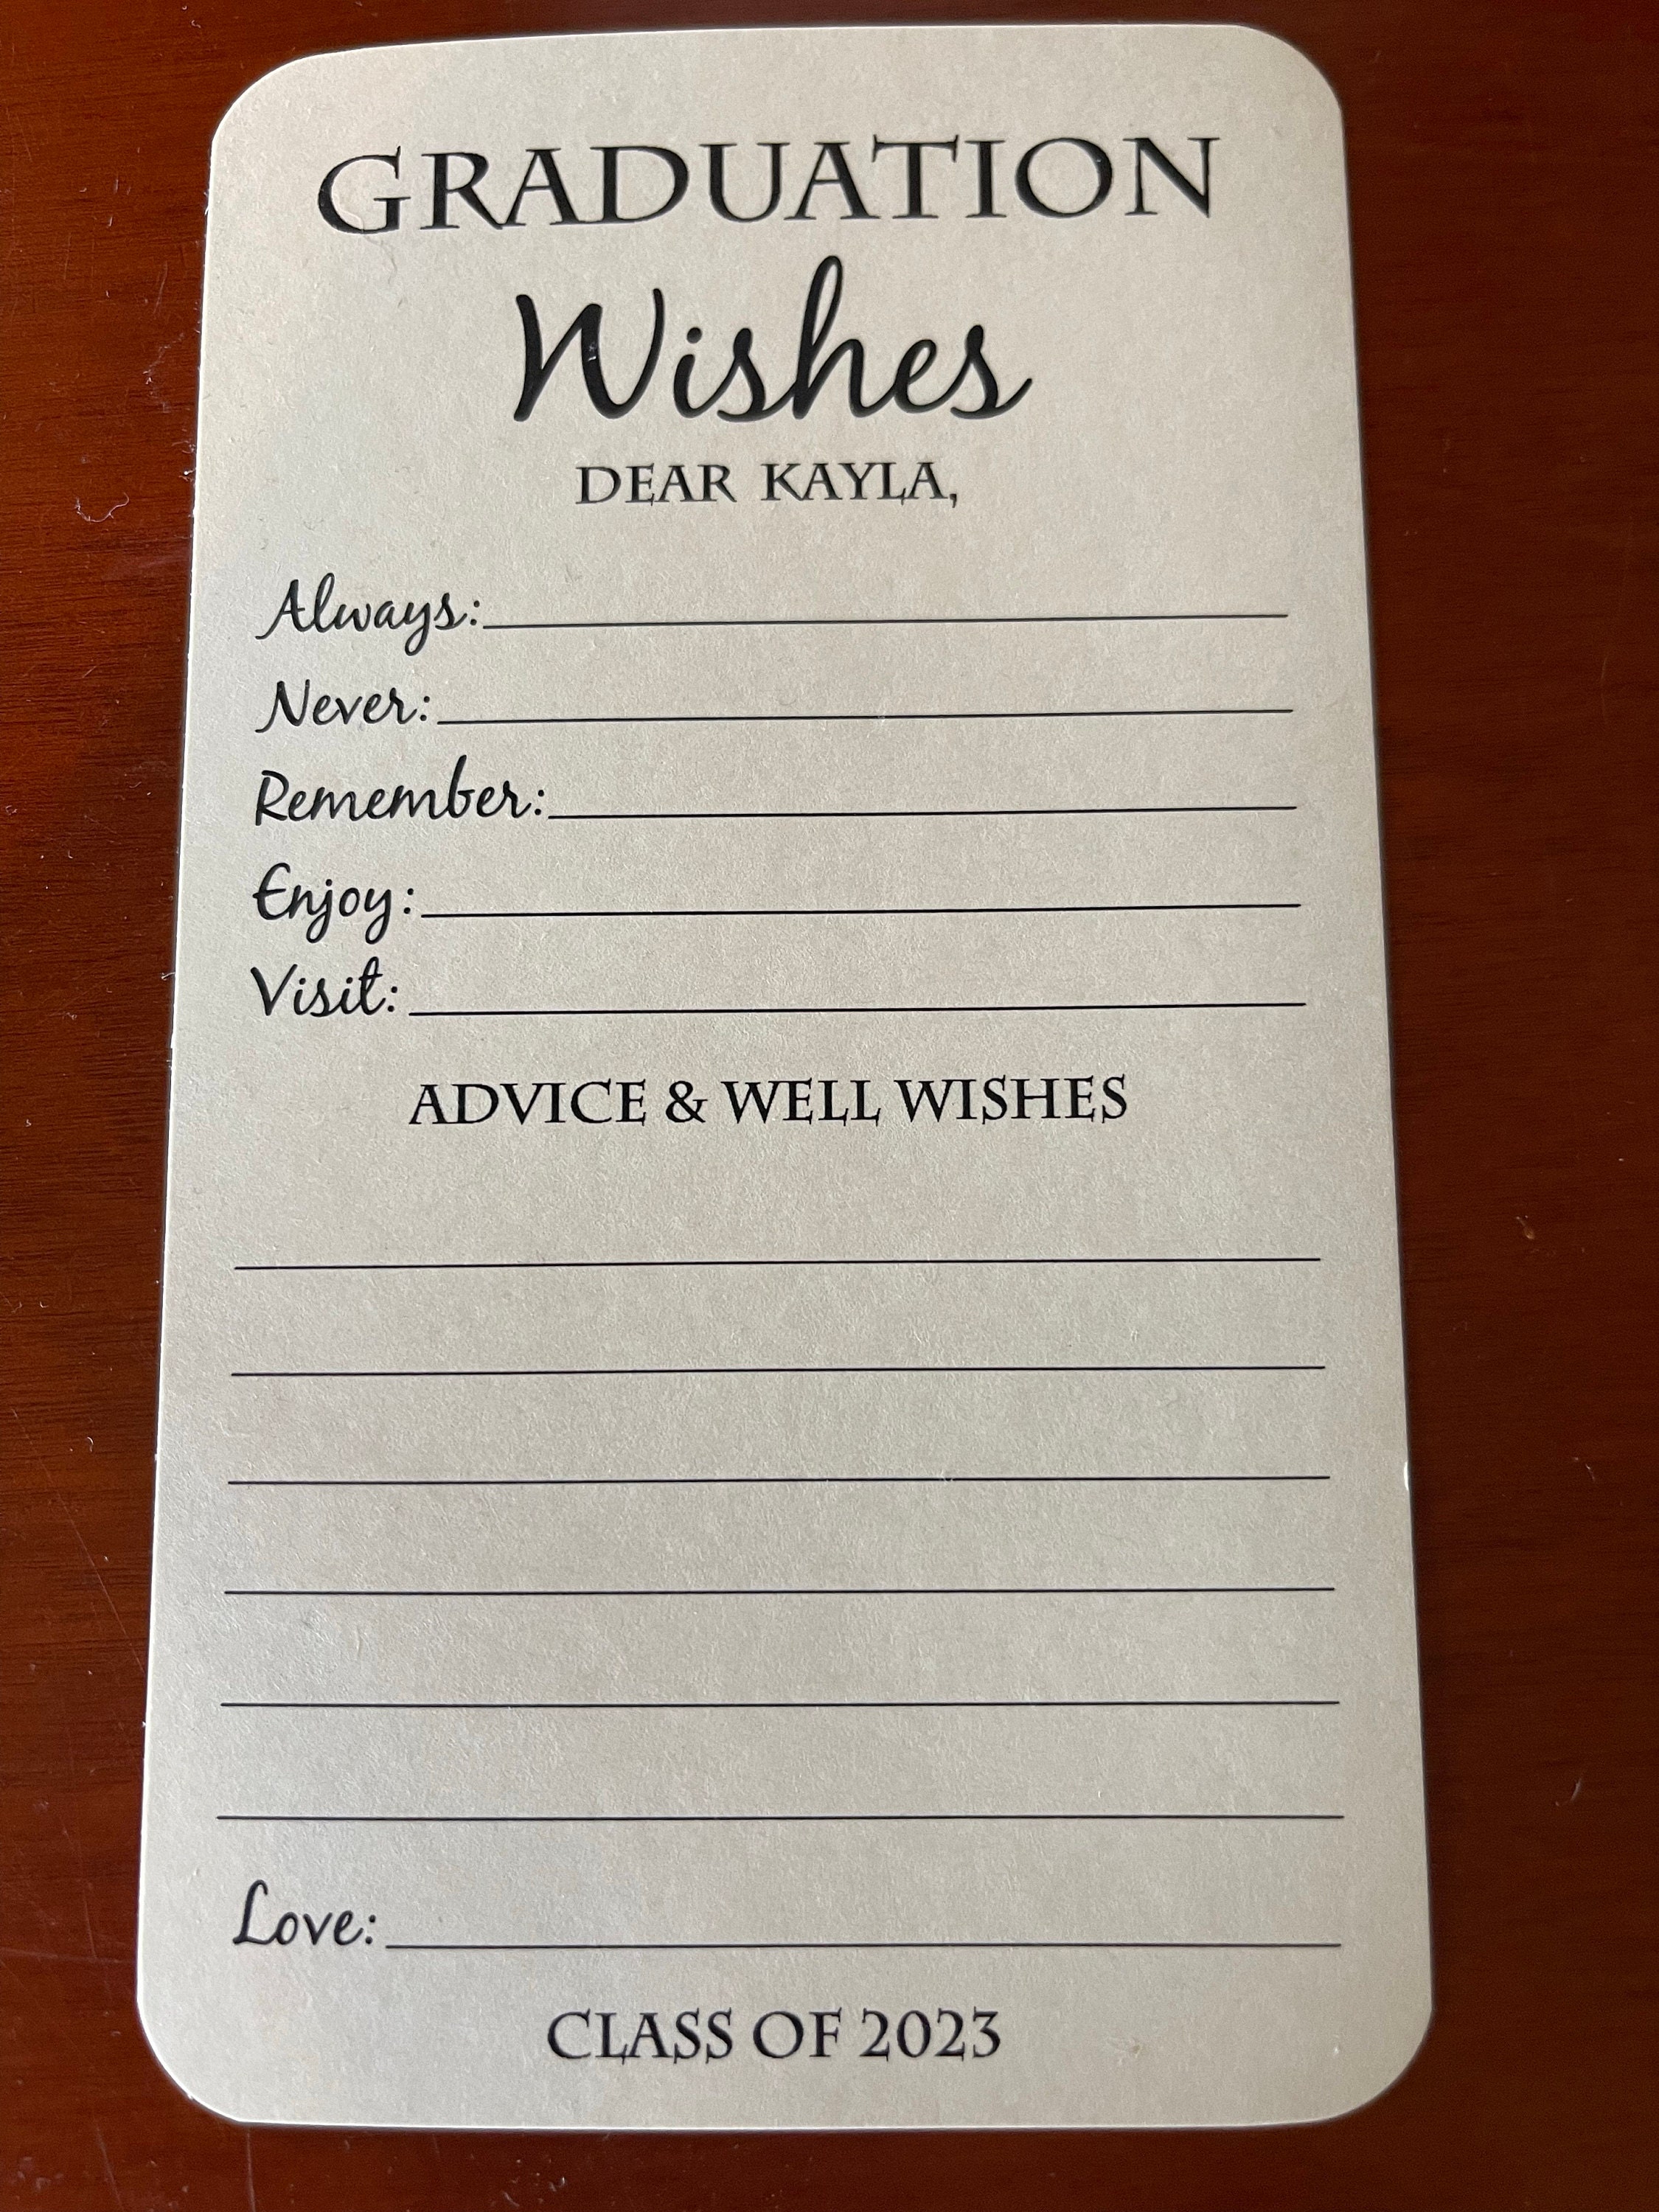 GRADUATION
Wishes
DEAR KAYLA,
Always:
Never:
Remember:
Enjoy:
Visit:
ADVICE & WELL WISHES
Love:
CLASS OF 2023